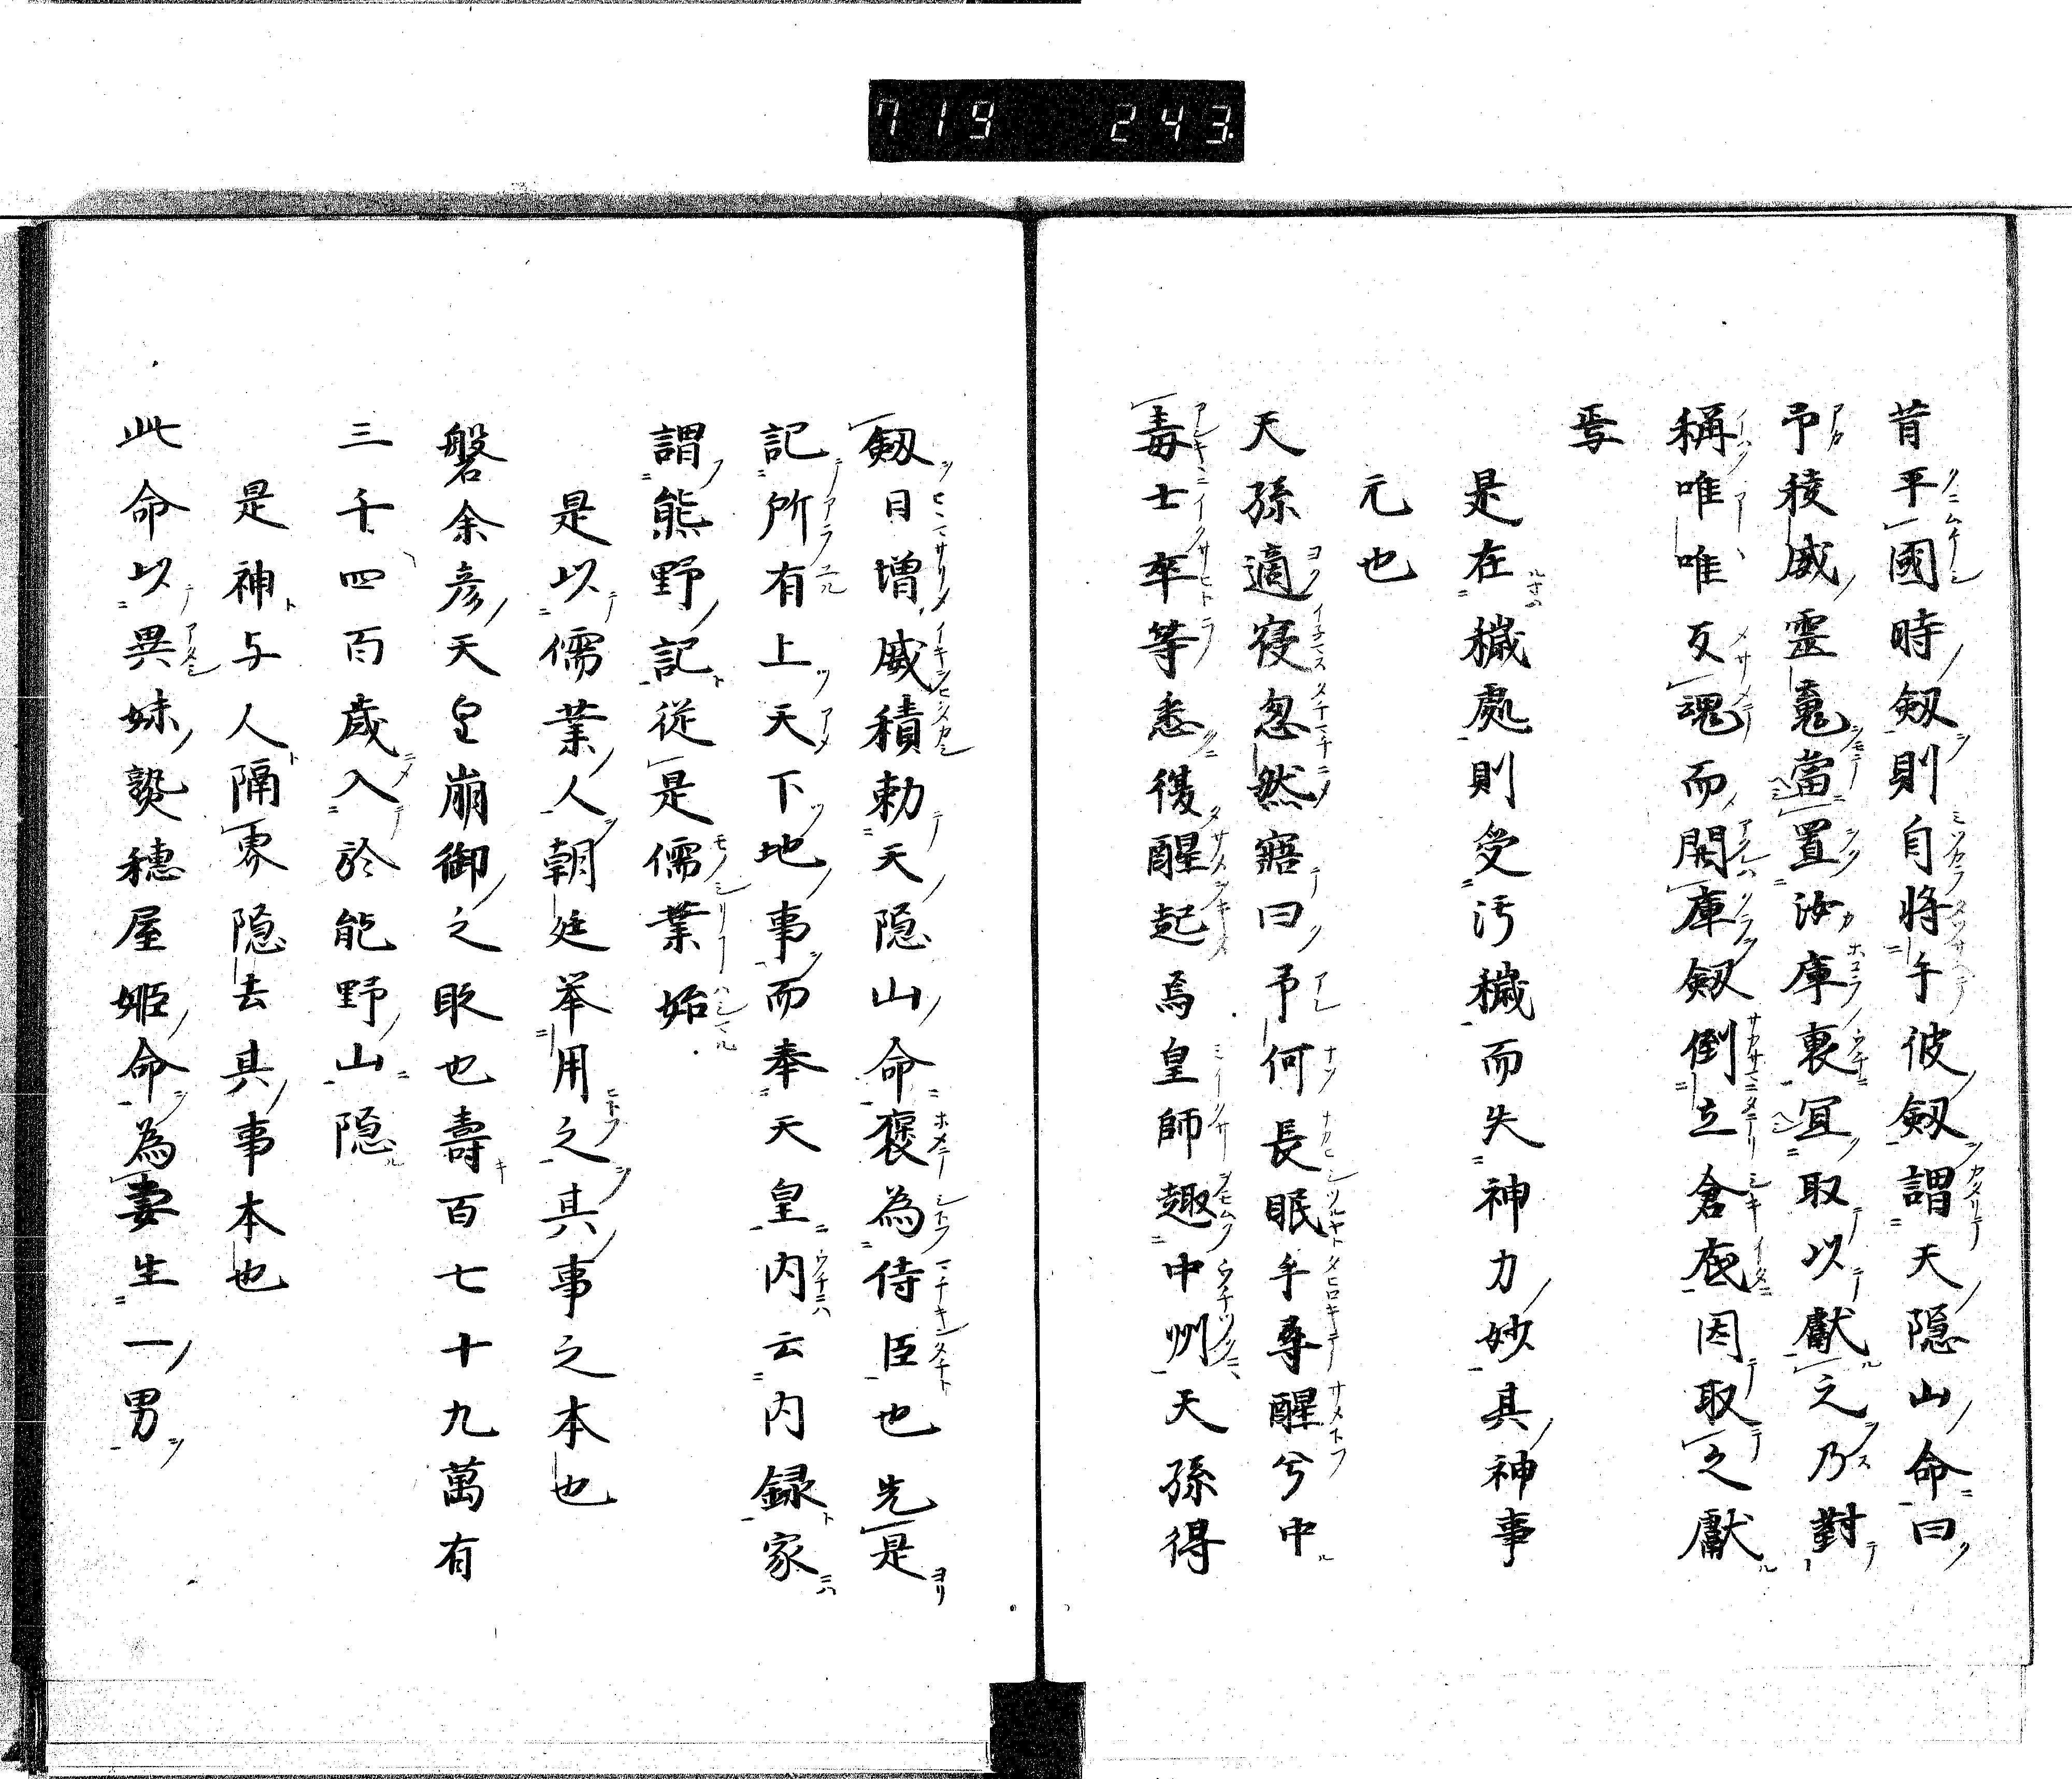 719 243
昔平國時劔則自將乎彼劔謂天隠山命曰
予稜威靈當置汝庫裏宜取以獻之乃對
稱唯唯反魂而開庫劔倒立倉底因取之獻
焉
是在穢處則受汚穢而失神力妙其神事
元也
天孫適寝忽然寤曰予何長眠乎尋醒兮中
毒士卒等悉復醒起焉皇師趣中州天孫得
劔日増威積勅天隠山命褒為侍臣也先是
記所有上天下地事而奉天皇内云内録家
謂熊野記従是儒業始
是以儒業人朝廷挙用之其事之本也
磐余彦天皇崩御之時也壽百七十九萬有
三千四百歳入於能野山隠
是神与人隔界隠去其事本也
此命以異妹穂屋姫命為妻生一男